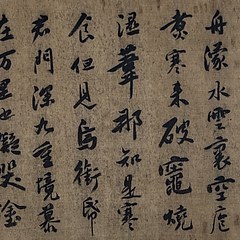 舟濛水雲裏空庖
煮寒菜破竈燒
濕葦那知是寒
食但見烏銜帋
君門深九重墳墓
在万里也擬哭塗